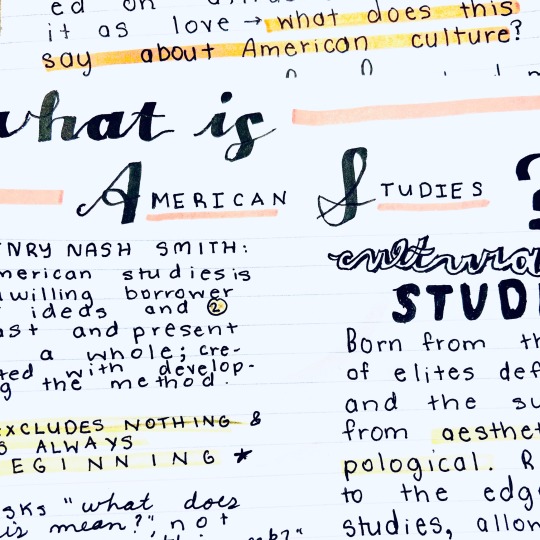 ed on
it as love → what does this
say about American culture?
what is
AMERICAN STUDIES ?
NRY NASH SMITH:
merican studies is
willing borrower
ideas and ②
ast and present
a whole; cre-
ted with develop-
g the method.
EXCLUDES NOTHING &
S ALWAYS
BEGINNING ★
sks "what does
is mean?", not
cultura
STUDI
Born from th
of elites def
and the su
from aesthet
pological. R
to the edg
studies, allow